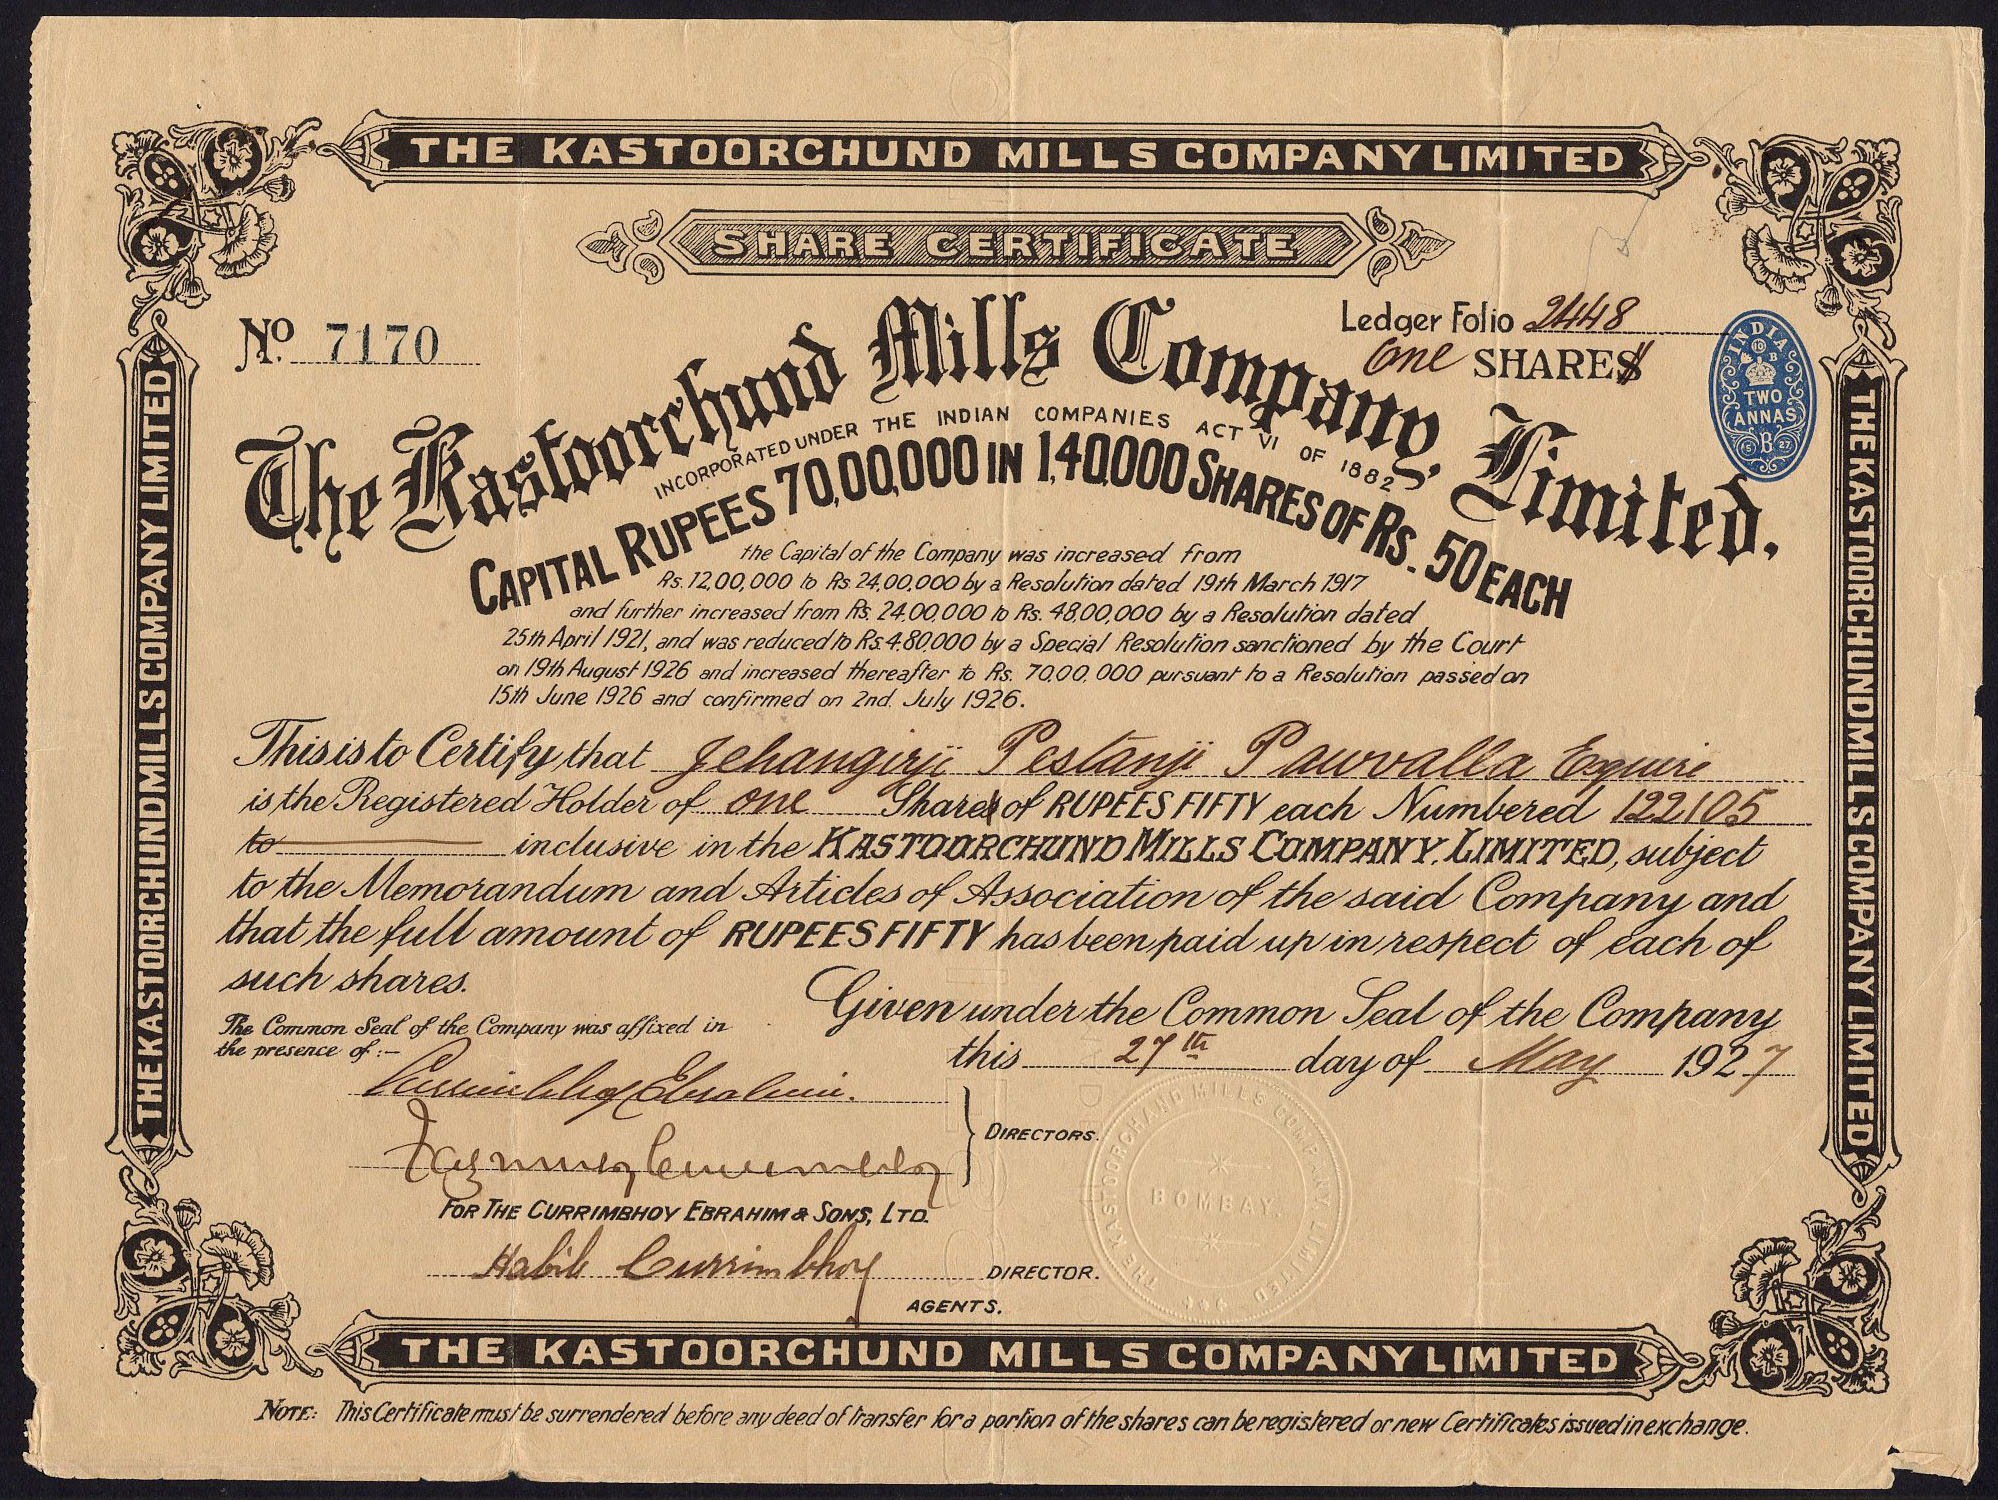 THE KASTOORCHUND MILLS COMPANY LIMITED
SHARE CERTIFICATE
No. 7170
Ledger Folio 2448
One SHARES
INDIA
10 B
TWO
ANNAS
15 B 27
The Kastoorchund Mills Company, Limited.
INCORPORATED UNDER THE INDIAN COMPANIES ACT VI OF 1882
CAPITAL RUPEES 70,00,000 IN 1,40,000 SHARES OF RS. 50 EACH
the Capital of the Company was increased from
Rs. 12,00,000 to Rs 24,00,000 by a Resolution dated 19th March 1917
and further increased from Rs. 24,00,000 to Rs. 48,00,000 by a Resolution dated
25th April 1921, and was reduced to Rs. 4,80,000 by a Special Resolution sanctioned by the Court
on 19th August 1926 and increased thereafter to Rs. 70,00,000 pursuant to a Resolution passed on
15th June 1926 and confirmed on 2nd. July 1926.
This is to Certify that Jehangirji Pestanji Pawvalla Esquire
is the Registered Holder of one Shares of RUPEES FIFTY each Numbered 122105
to inclusive in the KASTOORCHUND MILLS COMPANY, LIMITED, subject
to the Memorandum and Articles of Association of the said Company and
that the full amount of RUPEES FIFTY has been paid up in respect of each of
such shares.
Given under the Common Seal of the Company
this 27th day of May 1927
The Common Seal of the Company was affixed in
the presence of :-
Currimbhoy Ebrahim.
DIRECTORS.
FOR THE CURRIMBHOY EBRAHIM & SONS, LTD.
Habib Currimbhoy DIRECTOR.
AGENTS.
THE KASTOORCHAND MILLS COMPANY LIMITED
BOMBAY.
THE KASTOORCHUND MILLS COMPANY LIMITED
THE KASTOORCHUND MILLS COMPANY LIMITED
THE KASTOORCHUND MILLS COMPANY LIMITED
NOTE: This Certificate must be surrendered before any deed of transfer for a portion of the shares can be registered or new Certificates issued in exchange.